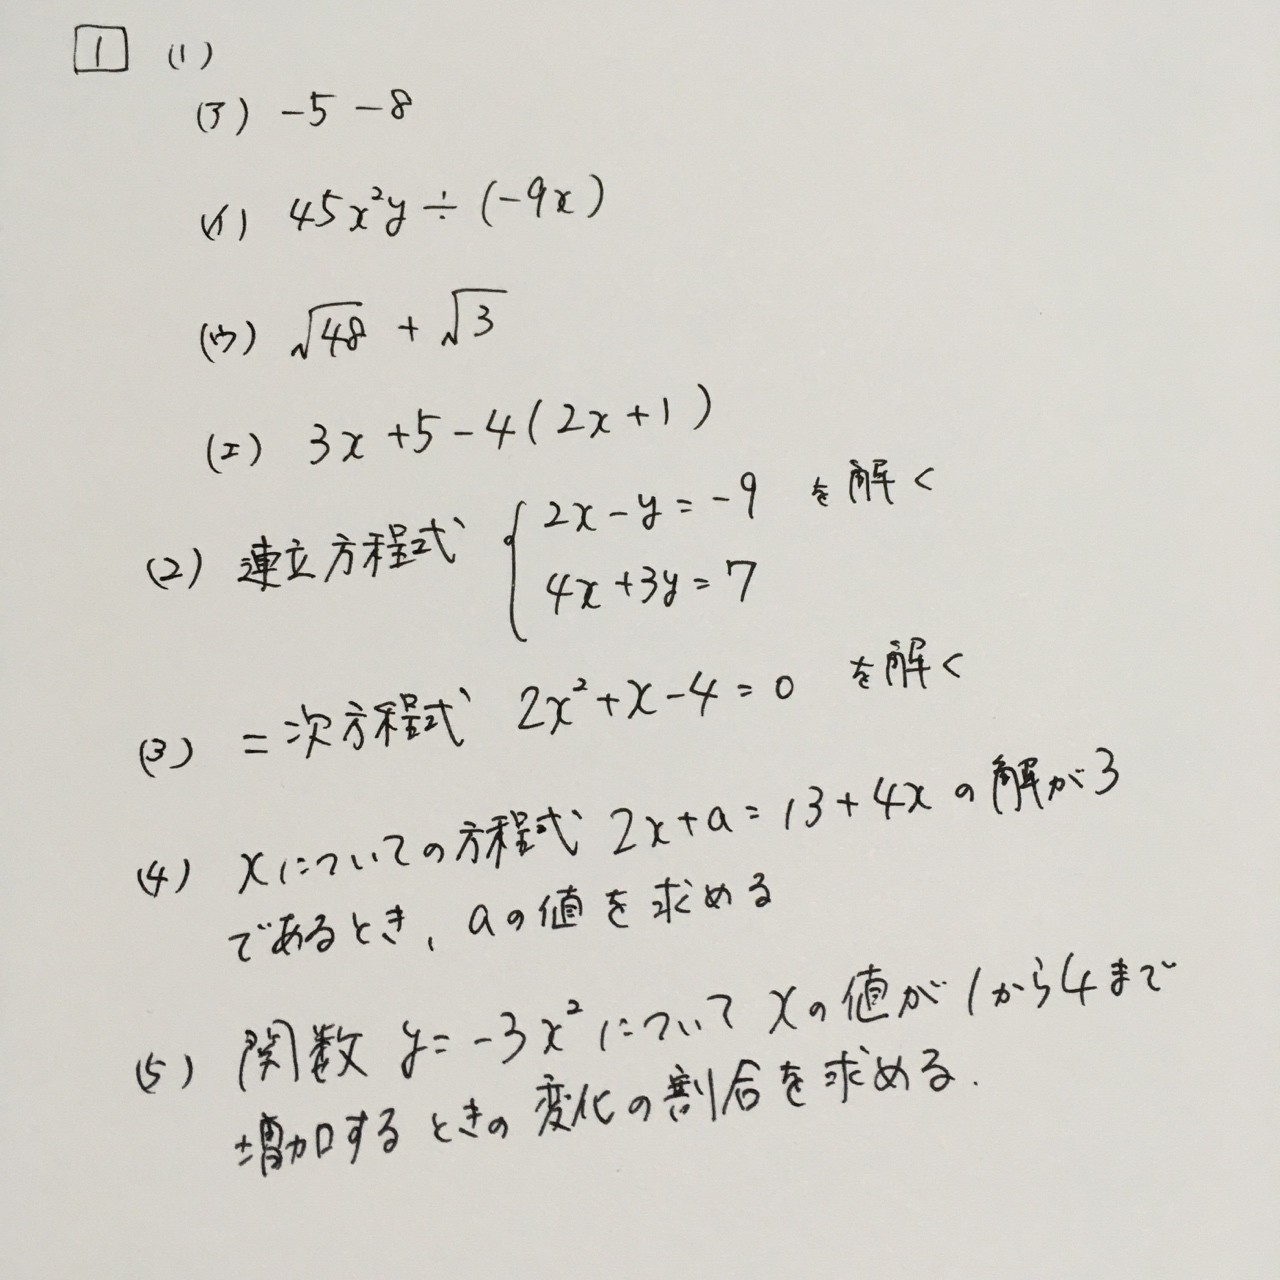 1 (1)
(ア) -5-8
(イ) 45x²y÷(-9x)
(ウ) √48 + √3
(エ) 3x+5-4(2x+1)
(2) 連立方程式 { 2x-y=-9 を解く
4x+3y=7
(3) 二次方程式 2x²+x-4=0 を解く
(4) xについての方程式 2x+a=13+4xの解が3
であるとき、aの値を求める
(5) 関数 y=-3x²について xの値が1から4まで
増加するときの変化の割合を求める.